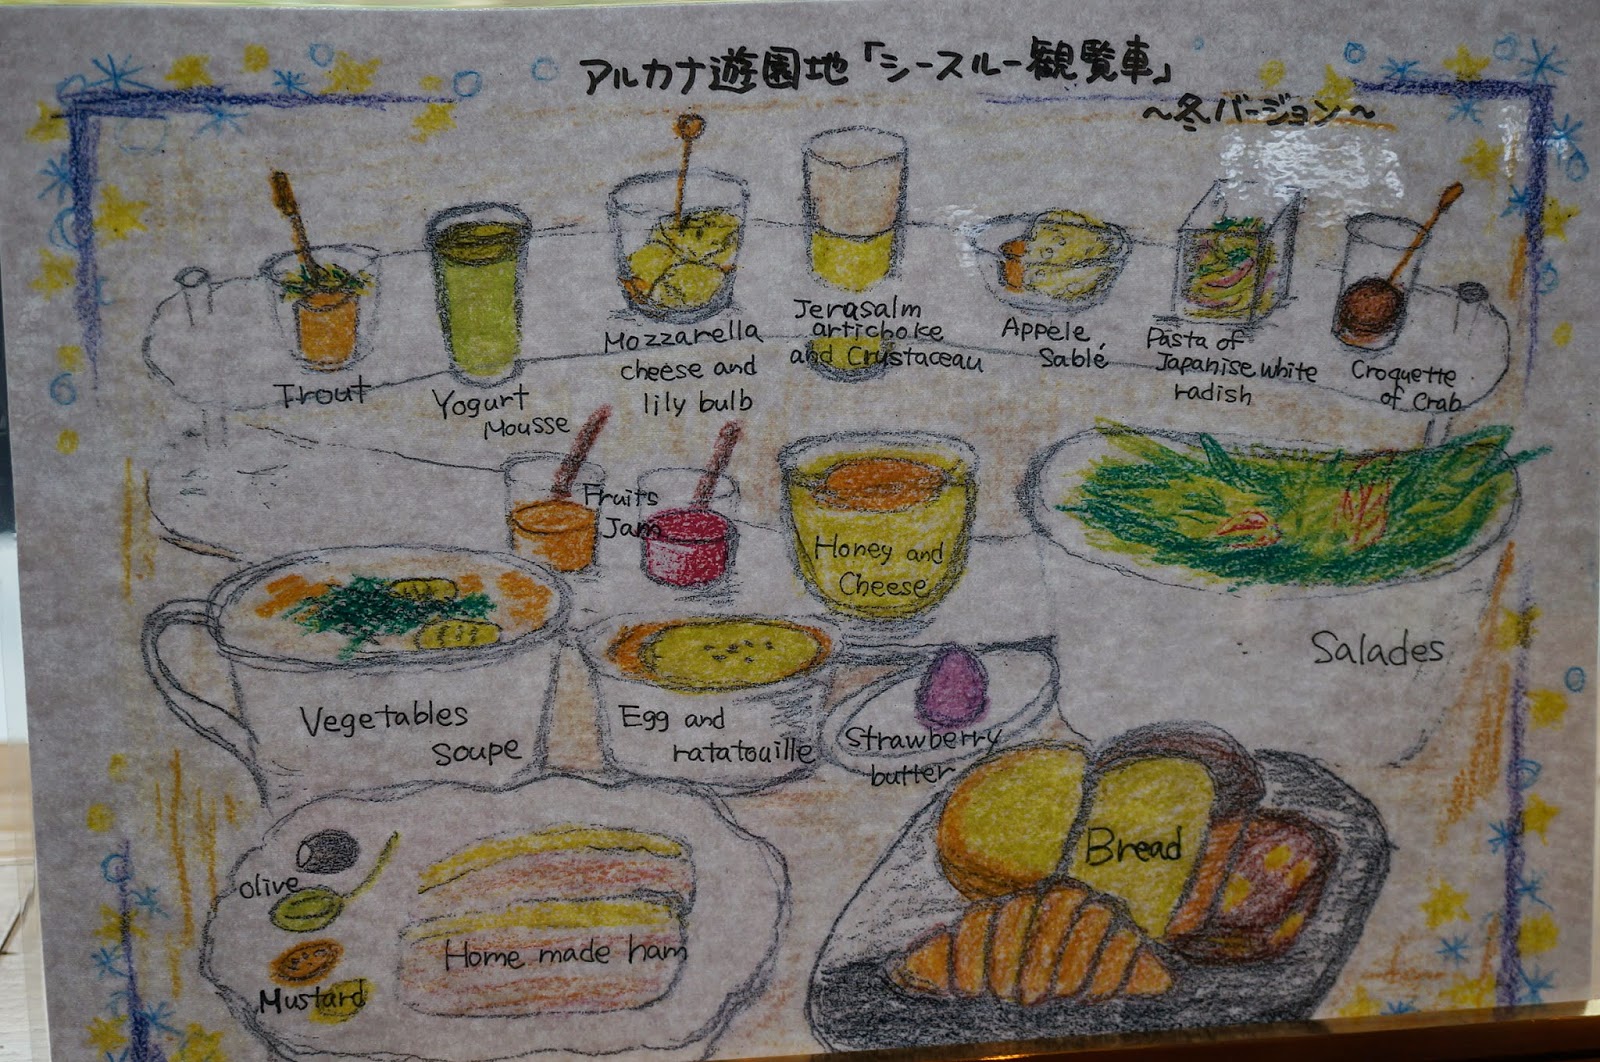 アルカナ遊園地「シースルー観覧車」
～冬バージョン～
Trout
Yogurt
Mousse
Mozzarella
cheese and
lily bulb
Jerasalm
artichoke
and Crustaceau
Appele
Sablé
Pasta of
Japanise white
radish
Croquette
of Crab
Fruits
Jam
Honey and
Cheese
Salades
Vegetables
soupe
Egg and
ratatouille
Strawberry
butter
Bread
olive
Mustard
Home made ham